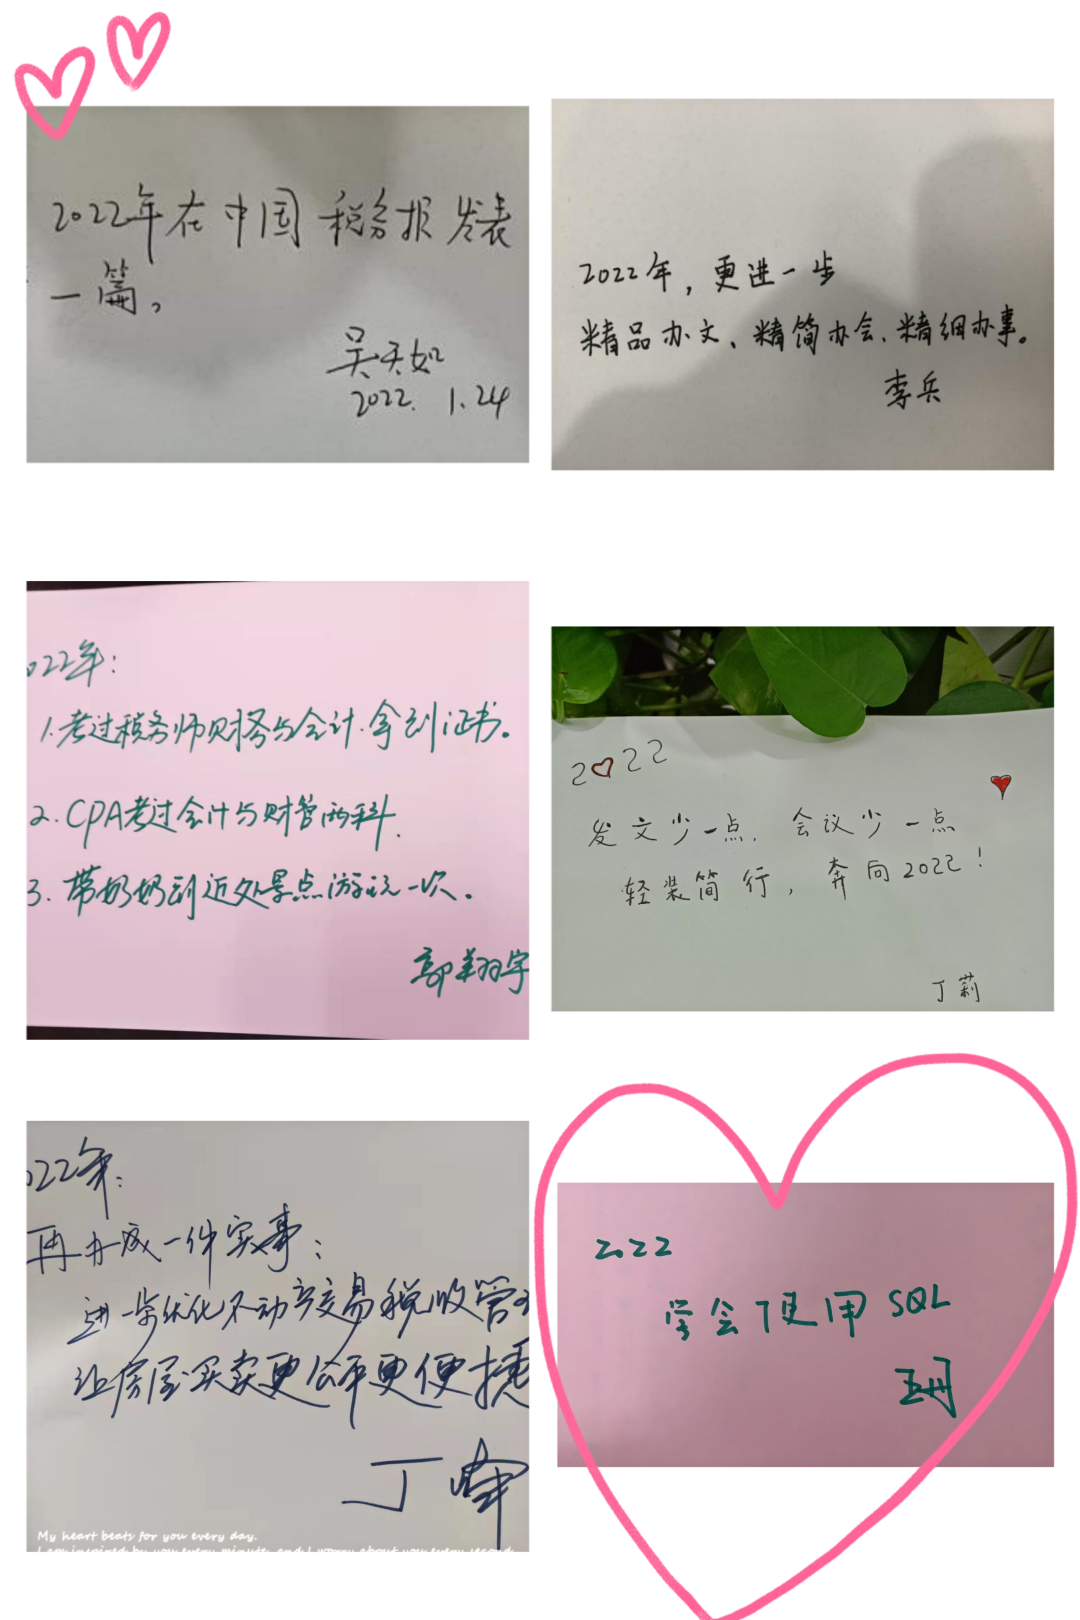 2022年在中国税务报发表
一篇。
吴天如
2022.1.24
2022年，更进一步
精品办文、精简办会、精细办事。
李兵
022年：
1.考过税务师财务与会计.拿到证书。
2.CPA考过会计与财管两科.
3.带奶奶到近处景点游玩一次。
郭翔宇
2022
发文少一点，会议少一点
轻装简行，奔向2022！
丁莉
022年：
再办成一件实事：
进一步优化不动产交易税收管
让房屋买卖更公平更便捷
丁
My heart beats for you every day.
I am inspired by you every minute, and I worry about you every second.
2022
学会使用SQL